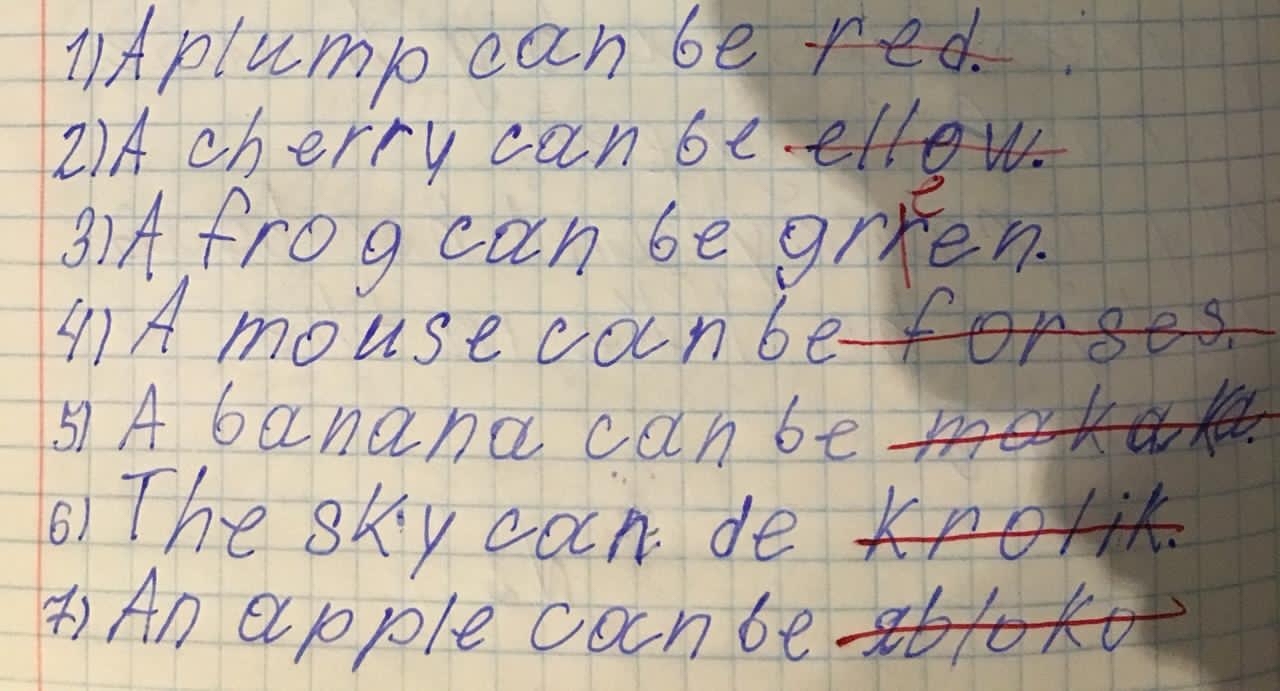 1) A plump can be red.
2) A cherry can be ellow.
e
3) A frog can be grren.
4) A mouse can be forses.
5) A banana can be makaka.
6) The sky can de krolik.
7) An apple can be abloko